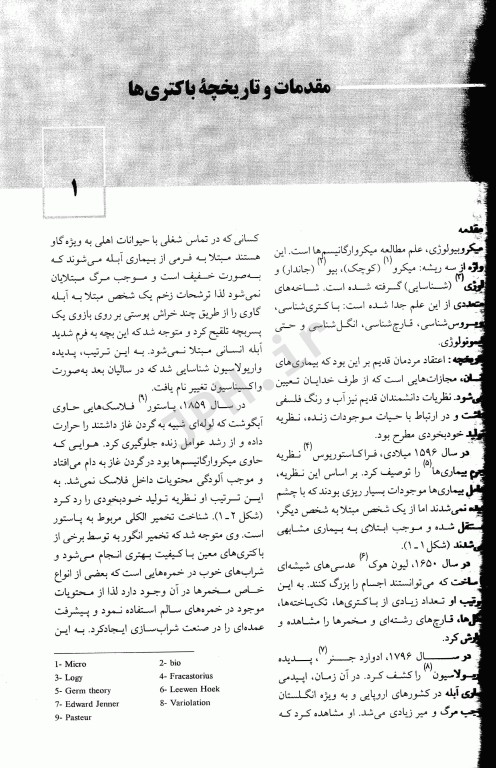 مقدمات و تاریخچهٔ باکتری‌ها
۱
مقدمه
میکروبیولوژی، علم مطالعه میکروارگانیسم‌ها است. این
واژه از سه ریشه: میکرو(۱) (کوچک)، بیو(۲) (جاندار) و
لوژی(۳) (شناسایی) گرفته شده است. شاخه‌های
متعددی از این علم جدا شده است: باکتری‌شناسی،
ویروس‌شناسی، قارچ‌شناسی، انگل‌شناسی و حتی
ایمونولوژی.
تاریخچه: اعتقاد مردمان قدیم بر این بود که بیماری‌های
انسان، مجازات‌هایی است که از طرف خدایان تعیین
می‌شود. نظریات دانشمندان قدیم نیز آب و رنگ فلسفی
داشت و در ارتباط با حیات موجودات زنده، نظریه
تولید خودبخودی مطرح بود.
در سال ۱۵۹۶ میلادی، فراکاستوریوس(۴) نظریه
جرم بیماری‌ها(۵) را توصیف کرد. بر اساس این نظریه،
عامل بیماری‌ها موجودات بسیار ریزی بودند که با چشم
دیده نمی‌شدند اما از یک شخص مبتلا به شخص دیگر،
منتقل شده و موجب ابتلای به بیماری مشابهی
می‌شدند (شکل ۱-۱).
در سال ۱۶۵۰، لیون هوک(۶) عدسی‌های شیشه‌ای
ساخت که می‌توانستند اجسام را بزرگ کنند. به این
ترتیب او تعداد زیادی از باکتری‌ها، تک‌یاخته‌ها،
گل‌ها، قارچ‌های رشته‌ای و مخمرها را مشاهده و
گزارش کرد.
در ســال ۱۷۹۶، ادوارد جنر(۷)، پدیده
واریولاسیون(۸) را کشف کرد. در آن زمان، اپیدمی
بیماری آبله در کشورهای اروپایی و به ویژه انگلستان
موجب مرگ و میر زیادی می‌شد. او مشاهده کرد که
کسانی که در تماس شغلی با حیوانات اهلی به ویژه گاو
هستند مبتلا به فرمی از بیماری آبله می‌شوند که
به‌صورت خفیف است و موجب مرگ مبتلایان
نمی‌شود لذا ترشحات زخم یک شخص مبتلا به آبله
گاوی را از طریق چند خراش پوستی بر روی بازوی یک
پسربچه تلقیح کرد و متوجه شد که این بچه به فرم شدید
آبله انسانی مبتلا نمی‌شود. به این ترتیب، پدیده
واریولاسیون شناسایی شد که در سالیان بعد به‌صورت
واکسیناسیون تغییر نام یافت.
در سال ۱۸۵۹، پاستور(۹) فلاسک‌هایی حاوی
آبگوشت که لوله‌ای شبیه به گردن غاز داشتند را حرارت
داده و از رشد عوامل زنده جلوگیری کرد. هوایی که
حاوی میکروارگانیسم‌ها بود در گردن غاز به دام می‌افتاد
و موجب آلودگی محتویات داخل فلاسک نمی‌شد. به
این ترتیب او نظریه تولید خودبخودی را رد کرد
(شکل ۲-۱). شناخت تخمیر الکلی مربوط به پاستور
است. وی متوجه شد که تخمیر انگور به توسط برخی از
باکتری‌های معین با کیفیت بهتری انجام می‌شود و
شراب‌های خوب در خمره‌هایی است که بعضی از انواع
خاص مخمرها در آن وجود دارد لذا از محتویات
موجود در خمره‌های سالم استفاده نمود و پیشرفت
عمده‌ای را در صنعت شراب‌سازی ایجاد کرد. به این
1- Micro 2- bio
3- Logy 4- Fracastorius
5- Germ theory 6- Leewen Hoek
7- Edward Jenner 8- Variolation
9- Pasteur
JPH.ir